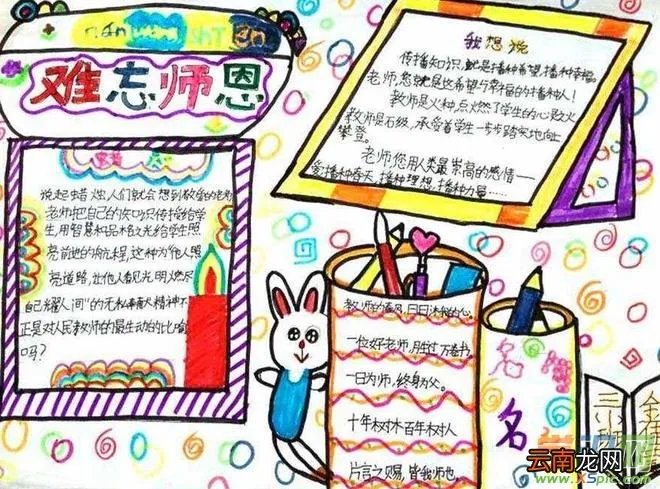 nan wang shi en
难忘师恩
说起蜡烛,人们就会想到教学的老师
老师把自己的知识传授给学
生,用智慧和品格之光给学生照
亮前进的航程,这种为他人照
亮道路,让他人看见光明"燃尽
自己耀人间"的无私奉献精神不
正是对人民教师的最生动的比喻
吗?
我想说
传播知识,就是播种希望,播种幸福。
老师,您就是这希望与幸福的播种人!
教师是火种,点燃了学生的心灵之火
教师是石级,承受着学生一步步踏实地向上
攀登。
老师您用人类最崇高的感情——
爱,播种春天,播种理想,播种力量……
教师的春风,日日沐我心。
一位好老师,胜过万卷书。
一日为师,终身为父。
十年树木百年树人
片言之赐,皆我师也。
名
云南龙网
www.XSpic.com